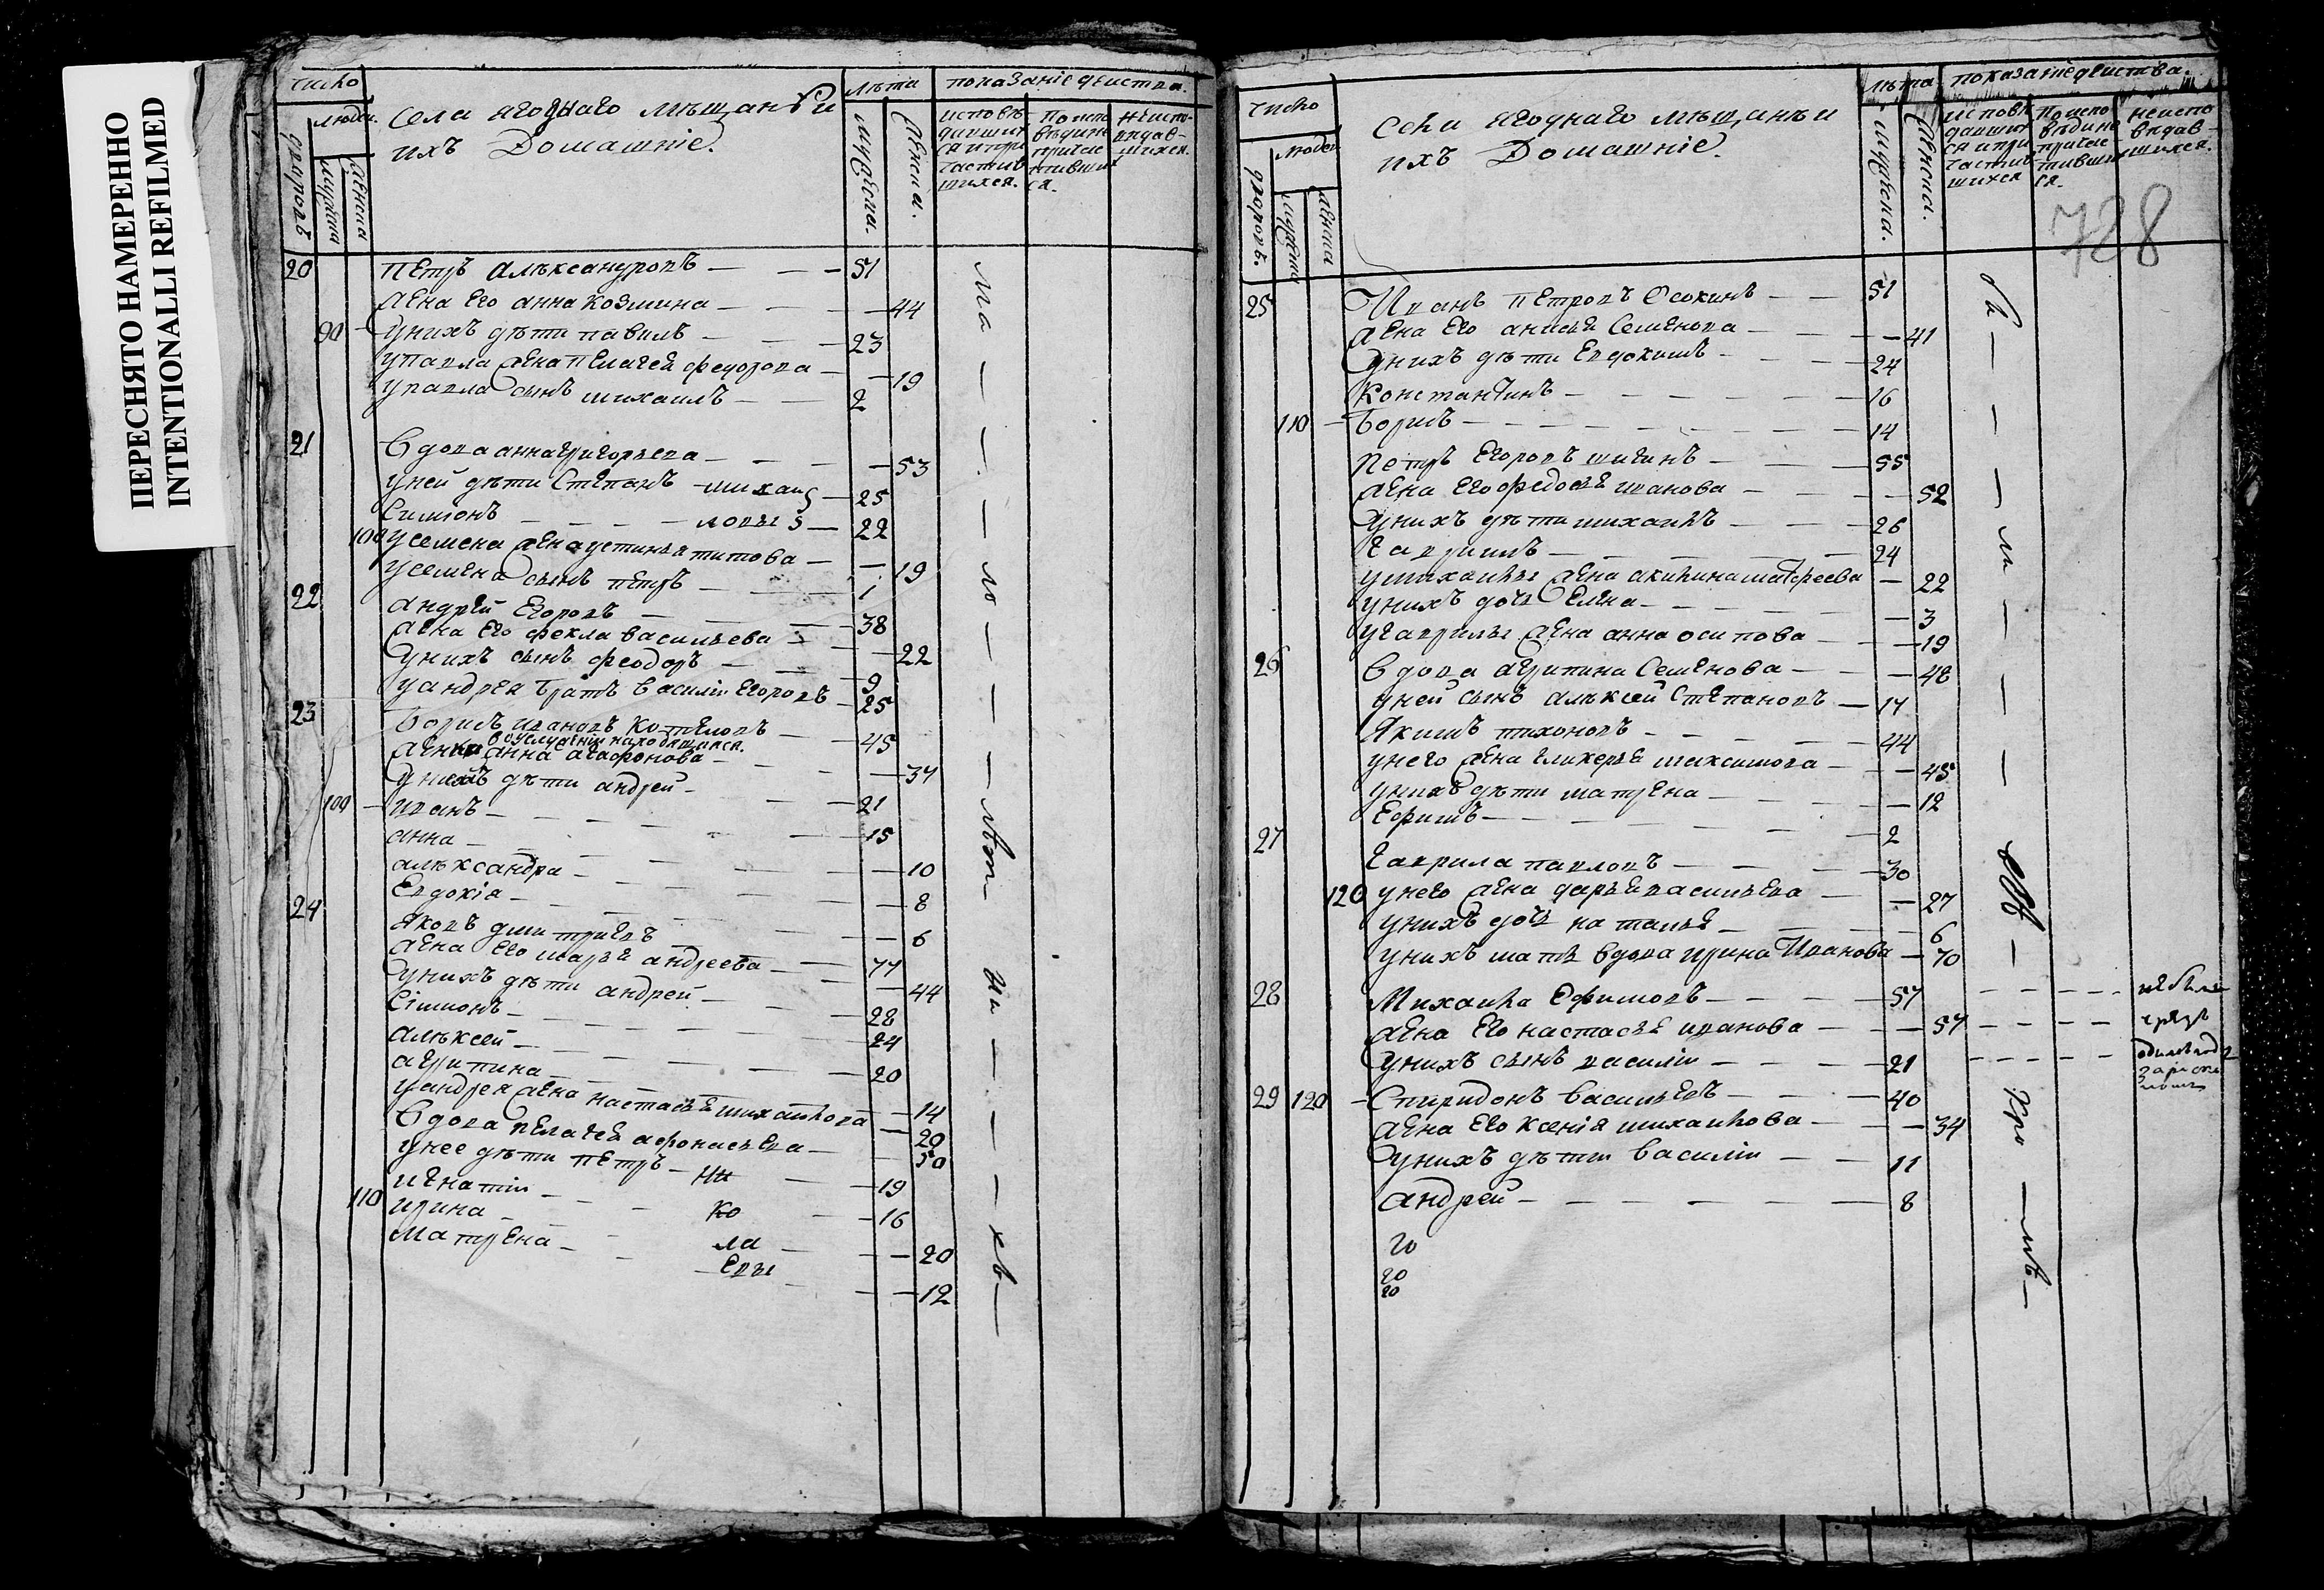 ПЕРЕСНЯТО НАМЕРЕННО
INTENTIONALLI REFILMED
число
людей
дворовъ
мужска
женска
Села Ягоднаго мѣщанѣ и
ихъ Домашніе.
лѣта
мужска.
женска.
показаніе действа.
исповѣ-
давших
ся и при
частив
шихся.
по испо
вѣдины
причас
тивши
ся.
неиспо-
ведав-
шихся.
20 петръ алѣксандровъ — 51
жена его анна козмина — 44
90 у нихъ дѣти павилъ — 23
у павла жена пелагея федорова — 19
у павла сынъ михаилъ — 2
21 вдова анна григорьева — 53
у ней дѣти Степанъ михаи — 25
Симионъ — ловы — 22
100 у семена жена устинья титова — 19
у семена сынъ петръ — 1
22 андрей Егоровъ — 38
жена его фекла васильева — 22
у нихъ сынъ феодоръ — 9
у андрея братъ василіи Егоровъ — 25
23 борисъ ивановъ котеловъ — 45
в отлучении находящихся.
жена анна агафонова — 37
у нихъ дѣти андрей — 21
100 иванъ — 15
анна — 10
алѣксандра — 8
Евдокія — 6
24 яковъ дмитриевъ — 47
жена его марья андреева — 44
у нихъ дѣти андрей — 28
Сімионъ — 24
алѣксей — 20
агрипина — 14
у андрея жена настасья михаилова — 20
вдова пелагея афонасьева — 50
у нее дѣти петръ — Ни — 19
игнатіи — ко — 16
110 ирина — ла — 20
матрена — Евы — 12
число
людей
дворовъ.
мужска
женска
Села Ягоднаго мѣщанѣ и
ихъ Домашніе.
лѣта
мужска.
женска.
показаніе действа.
исповѣ
давших
ся и при
частив
шихся
по испо
вѣдины
причас
тивши
ся.
неиспо
ведав-
шихся.
728
25 Иванъ петровъ Осокинъ — 51
жена его анисья Семенова — 41
у нихъ дѣти Евдокимъ — 24
Константинъ — 16
110 — Борисъ — 14
Петръ Егоровъ шигинъ — 55
жена его федосья иванова — 52
у нихъ дѣти михаилъ — 26
гаврилъ — 24
у михаилы жена акилина матфеева — 22
у нихъ дочь Елена — 3
у гаврилы жена анна осипова — 19
26 вдова агрипина Семенова — 48
у ней сынъ алѣксей Степановъ — 17
Якимъ тихоновъ — 44
у него жена гликерья максимова — 45
у нихъ дѣти матрена — 12
Ефимъ — 2
27 гаврила павловъ — 30
120 у него жена дарья васильева — 27
у нихъ дочь наталья — 6
у нихъ мать вдова ирина Иванова — 70
28 Михаила Ефимовъ — 57
жена его настасья иванова — 57
у нихъ сынъ василіи — 21
29 120 — Спиридонъ васильевъ — 40
жена его Ксенія михаилова — 34
у нихъ дѣти василіи — 11
андрей — 8
20
20
20